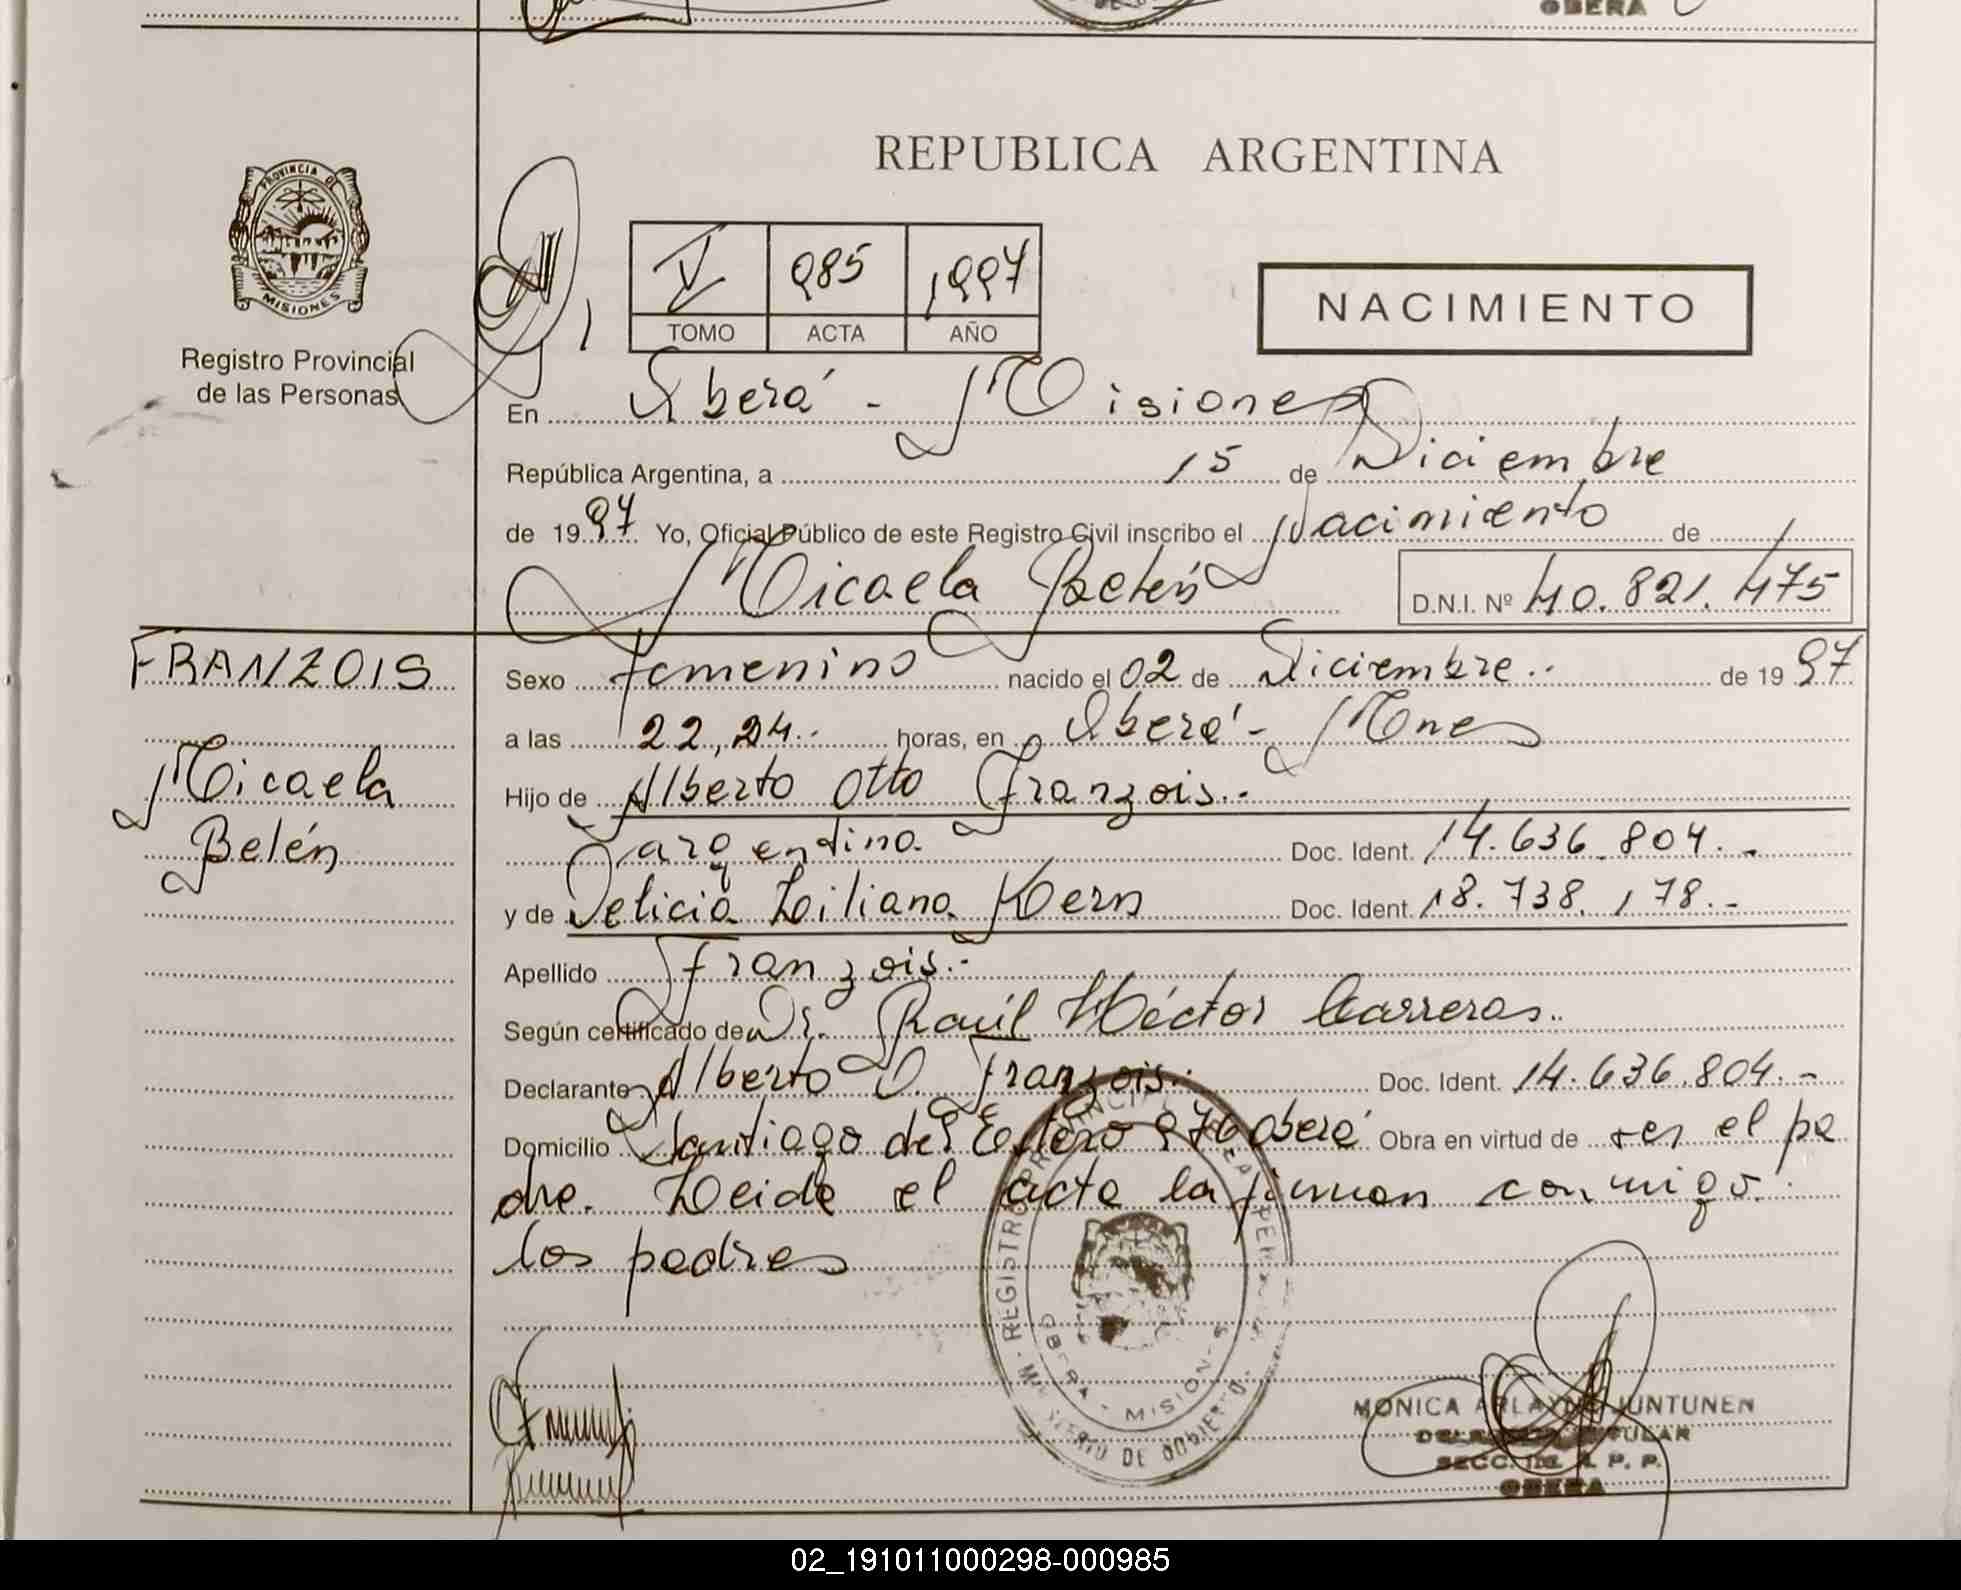 OBERA
REPUBLICA ARGENTINA
PROVINCIA DE
MISIONES
Registro Provincial
de las Personas
V 985 1997
TOMO ACTA AÑO
NACIMIENTO
En Oberá - Misiones
República Argentina, a 15 de Diciembre
de 1997 Yo, Oficial Público de este Registro Civil inscribo el Nacimiento de
Micaela Belén D.N.I. Nº 40.821.475
FRANZOIS
Micaela
Belén
Sexo femenino nacido el 02 de Diciembre.. de 1997
a las 22,24.. horas, en Oberá - Mnes
Hijo de Alberto Otto Franzois..
argentino. Doc. Ident. 14.636.804.-
y de Delicia Liliana Kern Doc. Ident. 18.738.178.-
Apellido Franzois.-
Según certificado de Dr. Raúl Héctor Carreras..
Declarante Alberto O. Franzois.. Doc. Ident. 14.636.804.-
Domicilio Santiago del Estero 976 Oberá Obra en virtud de ser el pa
dre. Leida el acta la firman conmigo.
los padres
OBERA - MISIONES
MONICA ARLAYNE JUNTUNEN
SECC. R. P. P.
OBERA
02_191011000298-000985